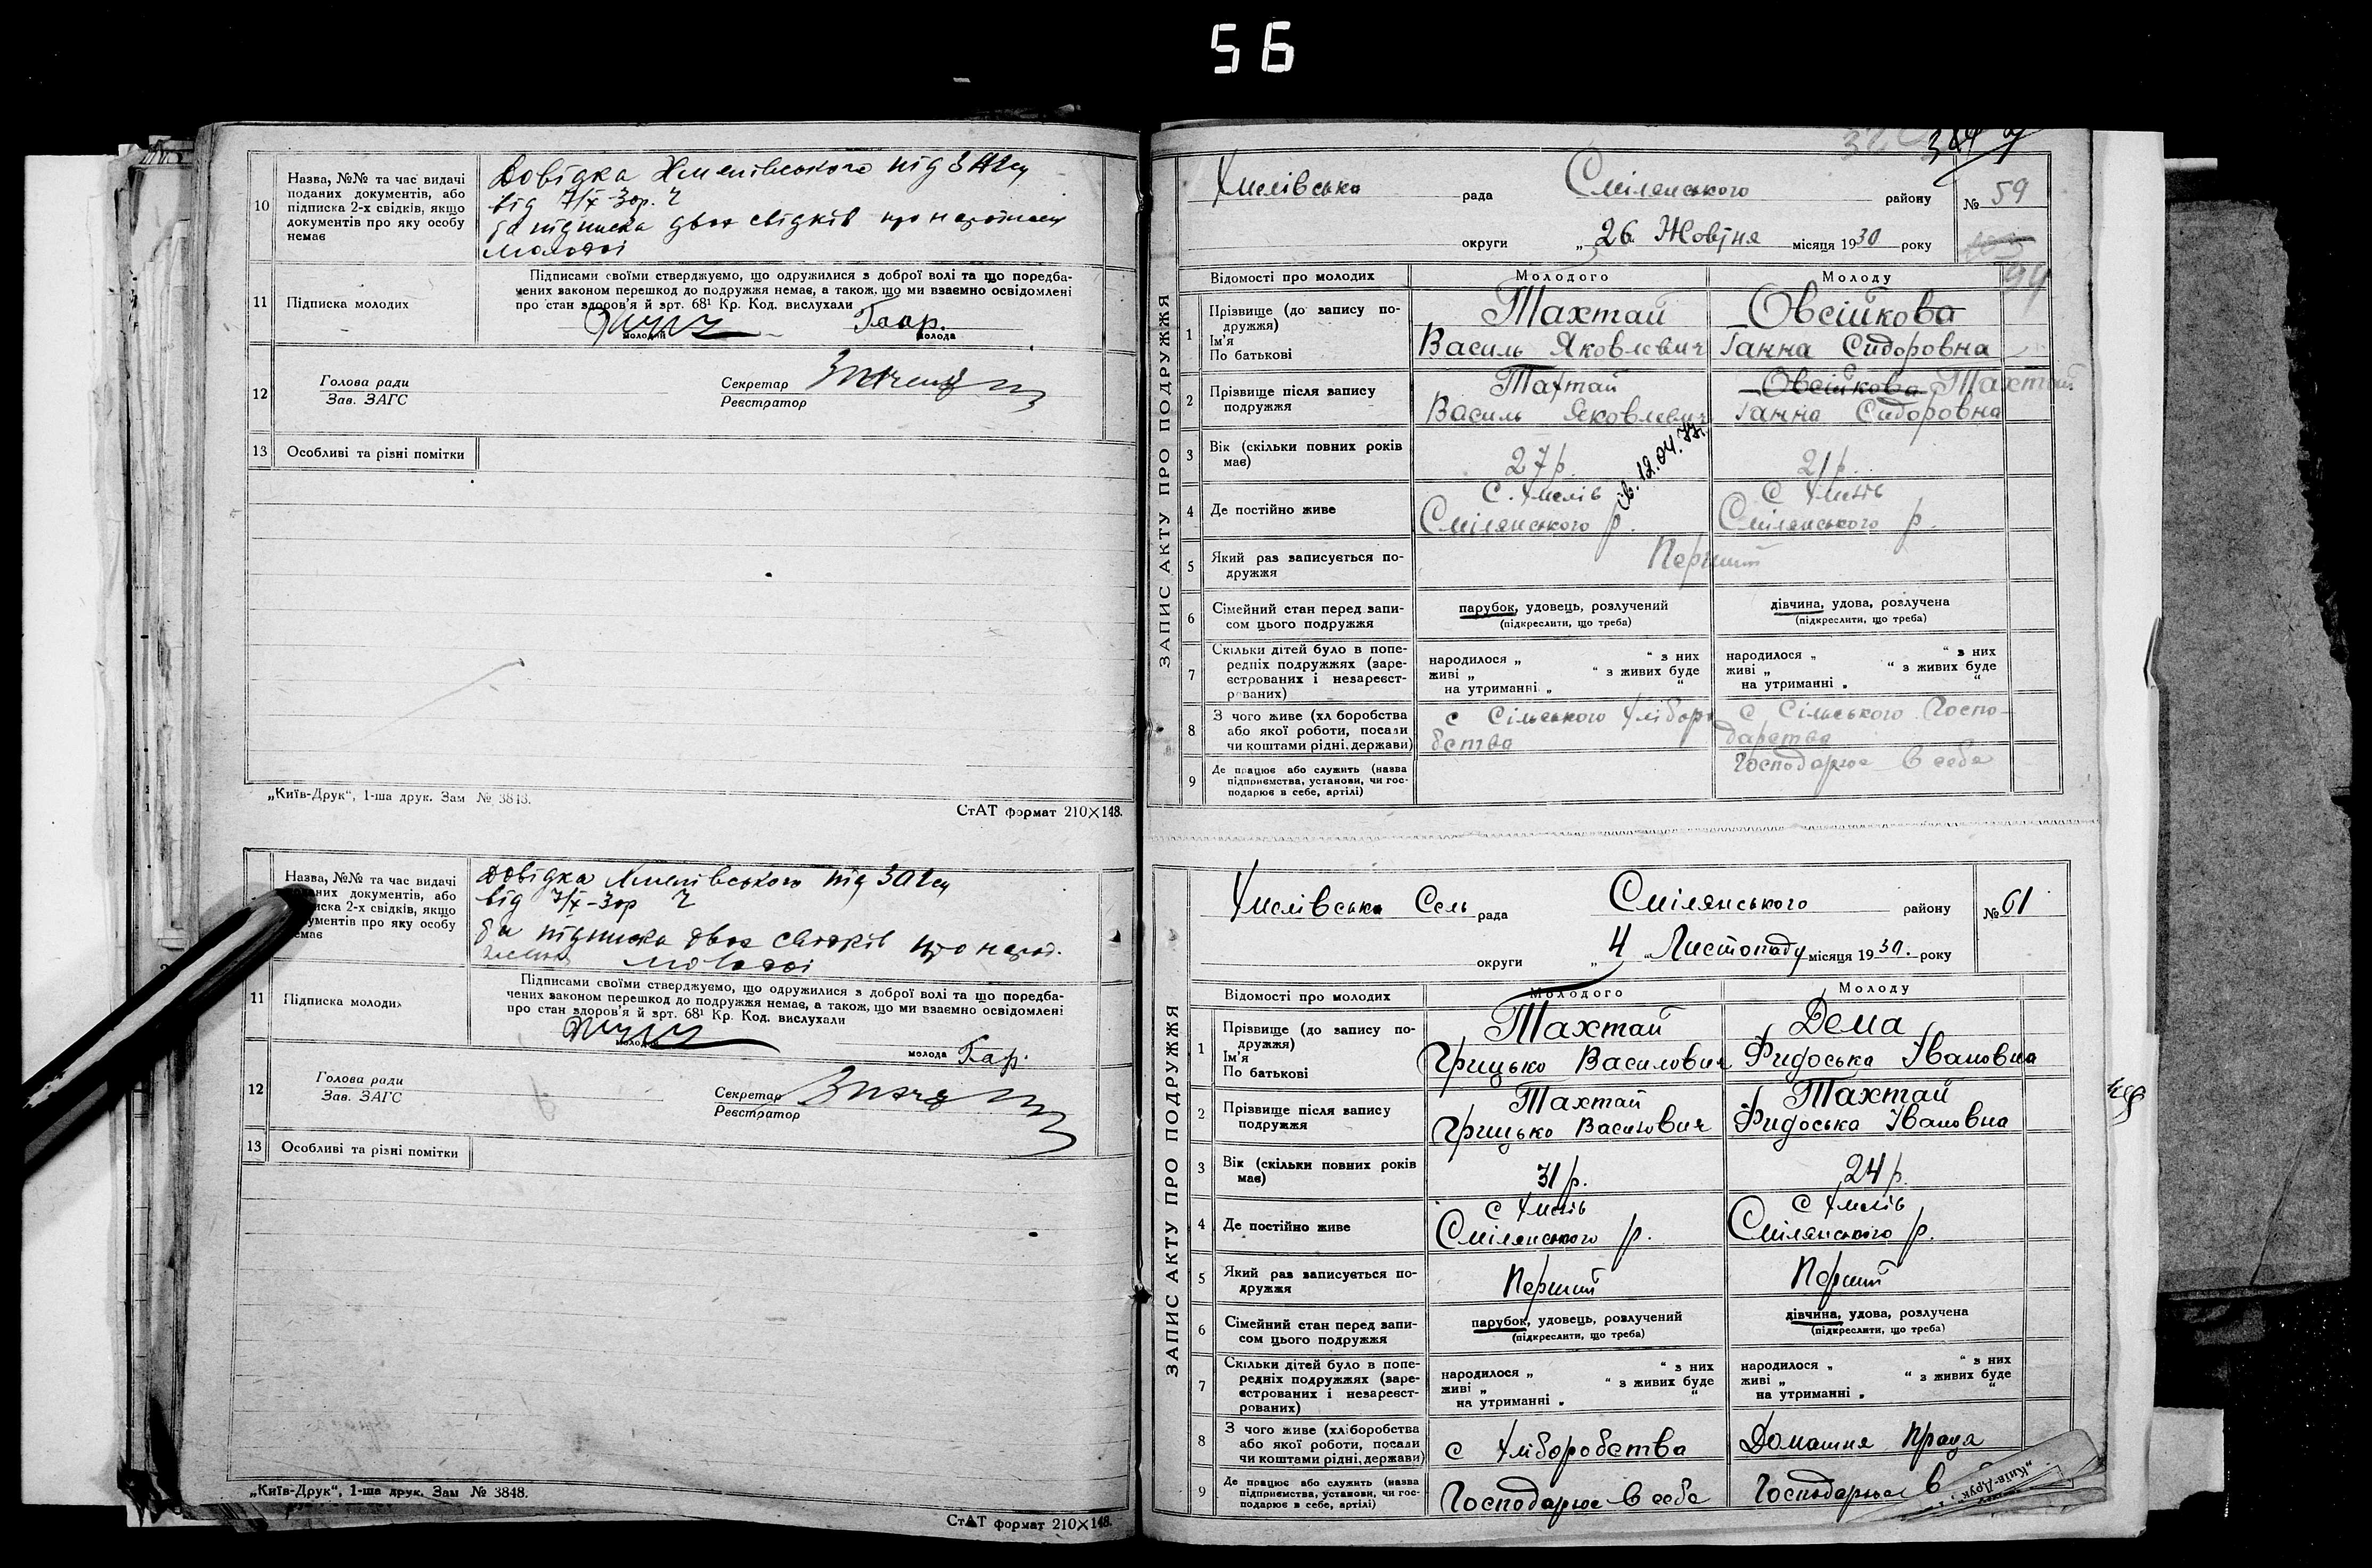 56
10
Назва, №№ та час видачі
поданих документів, або
підписка 2-х свідків, якщо
документів про яку особу
немає
Довідка Хмелівського під ЗАГСу
від 7/X-30р.
та підписка двох свідків про народження
молодої
11
Підписка молодих
Підписами своїми стверджуємо, що одружилися з доброї волі та що передба-
чених законом перешкод до подружжя немає, а також, що ми взаємно освідомлені
про стан здоров'я й арт. 68¹ Кр. Код. вислухали
молодий
молода
12
Голова ради
Зав. ЗАГС
Секретар
Реєстратор
13
Особливі та різні помітки
„Київ-Друк“, 1-ша друк. Зам № 3848.
СтАТ формат 210×148.
Назва, №№ та час видачі
документів, або
2-х свідків, якщо
про яку особу
Довідка Хмелівського під ЗАГСу
від 7/X-30р
та підписка двох свідків про народ.
молодої
11
Підписка молодих
Підписами своїми стверджуємо, що одружилися з доброї волі та що передба-
чених законом перешкод до подружжя немає, а також, що ми взаємно освідомлені
про стан здоров'я й арт. 68¹ Кр. Код. вислухали
молодий
молода
12
Голова ради
Зав. ЗАГС
Секретар
Реєстратор
13
Особливі та різні помітки
„Київ-Друк“, 1-ша друк. Зам № 3848.
СтАТ формат 210×148.
ЗАПИС АКТУ ПРО ПОДРУЖЖЯ
Хмелівська рада Смілянського району № 59
округи „26 Жовтня місяця 1930 року
Відомості про молодих
Молодого
Молоду
1
Прізвище (до запису по-
дружжя)
Ім'я
По батькові
Тахтай
Василь Яковлевич
Овсійкова
Ганна Сидоровна
2
Прізвище після запису
подружжя
Тахтай
Василь Яковлевич
Овсійкова Тахтай
Ганна Сидоровна
3
Вік (скільки повних років
має)
27 р.
21 р.
4
Де постійно живе
С. Хмелів
Смілянського р.
С Хмелів
Смілянського р.
5
Який раз записується по-
дружжя
Перший
6
Сімейний стан перед запи-
сом цього подружжя
парубок, удовець, розлучений
(підкреслити, що треба)
дівчина, удова, розлучена
(підкреслити, що треба)
7
Скільки дітей було в попе-
редніх подружжях (заре-
єстрованих і незареєст-
рованих)
народилося „ “ з них
живі „ “ з живих буде
на утриманні „ “
народилося „ “ з них
живі „ “ з живих буде
на утриманні „ “
8
З чого живе (хліборобства
або якої роботи, посади
чи коштами рідні, держави)
с Сільського Хліборо
бства
С Сільського Госпо-
дарства
9
Де працює або служить (назва
підприємства, установи, чи гос-
подарює в себе, артілі)
Господарює в себе
ЗАПИС АКТУ ПРО ПОДРУЖЖЯ
Хмелівська Сель рада Смілянського району № 61
округи „4 Листопаду місяця 1930. року
Відомості про молодих
Молодого
Молоду
1
Прізвище (до запису по-
дружжя)
Ім'я
По батькові
Тахтай
Грицько Василович
Дема
Фидоська Івановна
2
Прізвище після запису
подружжя
Тахтай
Грицько Василович
Тахтай
Фидоська Івановна
3
Вік (скільки повних років
має)
31 р.
24 р.
4
Де постійно живе
С Хмелів
Смілянського р.
С Хмелів
Смілянського р.
5
Який раз записується по-
дружжя
Перший
Перший
6
Сімейний стан перед запи-
сом цього подружжя
парубок, удовець, розлучений
(підкреслити, що треба)
дівчина, удова, розлучена
(підкреслити, що треба)
7
Скільки дітей було в попе-
редніх подружжях (заре-
єстрованих і незареєст-
рованих)
народилося „ “ з них
живі „ “ з живих буде
на утриманні „ “
народилося „ “ з них
живі „ “ з живих буде
на утриманні „ “
8
З чого живе (хліборобства
або якої роботи, посади
чи коштами рідні, держави)
с Хліборобства
Домашня праця
9
Де працює або служить (назва
підприємства, установи, чи гос-
подарює в себе, артілі)
Господарює в себе
Господарює в
„Київ-Друк“,